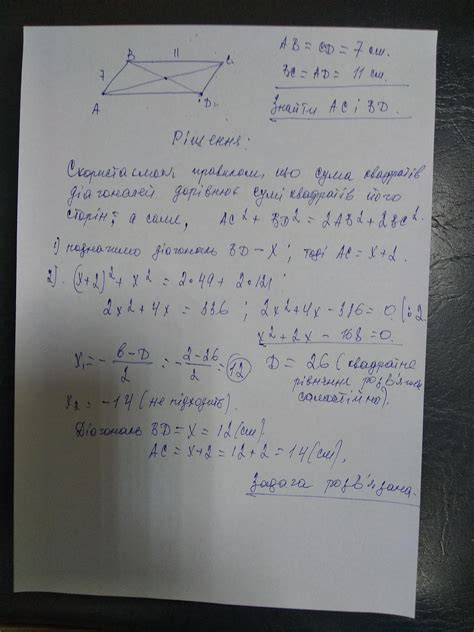 B 11 C
7
A D
AB = CD = 7 см.
BC = AD = 11 см.
Знайти AC і BD.
Рішення:
Скористаємося правилом, що сума квадратів
діагоналей дорівнює сумі квадратів його
сторін, а саме, AC² + BD² = 2AB² + 2BC².
1) позначимо діагональ BD – X ; тоді AC = X + 2.
2) (X+2)² + X² = 2·49 + 2·121 ;
2x² + 4x = 336 ; 2x² + 4x – 336 = 0 (:2
x² + 2x – 168 = 0.
X₁ = – b–D / 2 = – 2–26 / 2 = 12 D = 26 (квадратне
рівняння розв'яжеш
самостійно).
X₂ = –14 (не підходить).
Діагональ BD = X = 12 (см).
AC = X+2 = 12 + 2 = 14 (см).
Задача розв'язана.